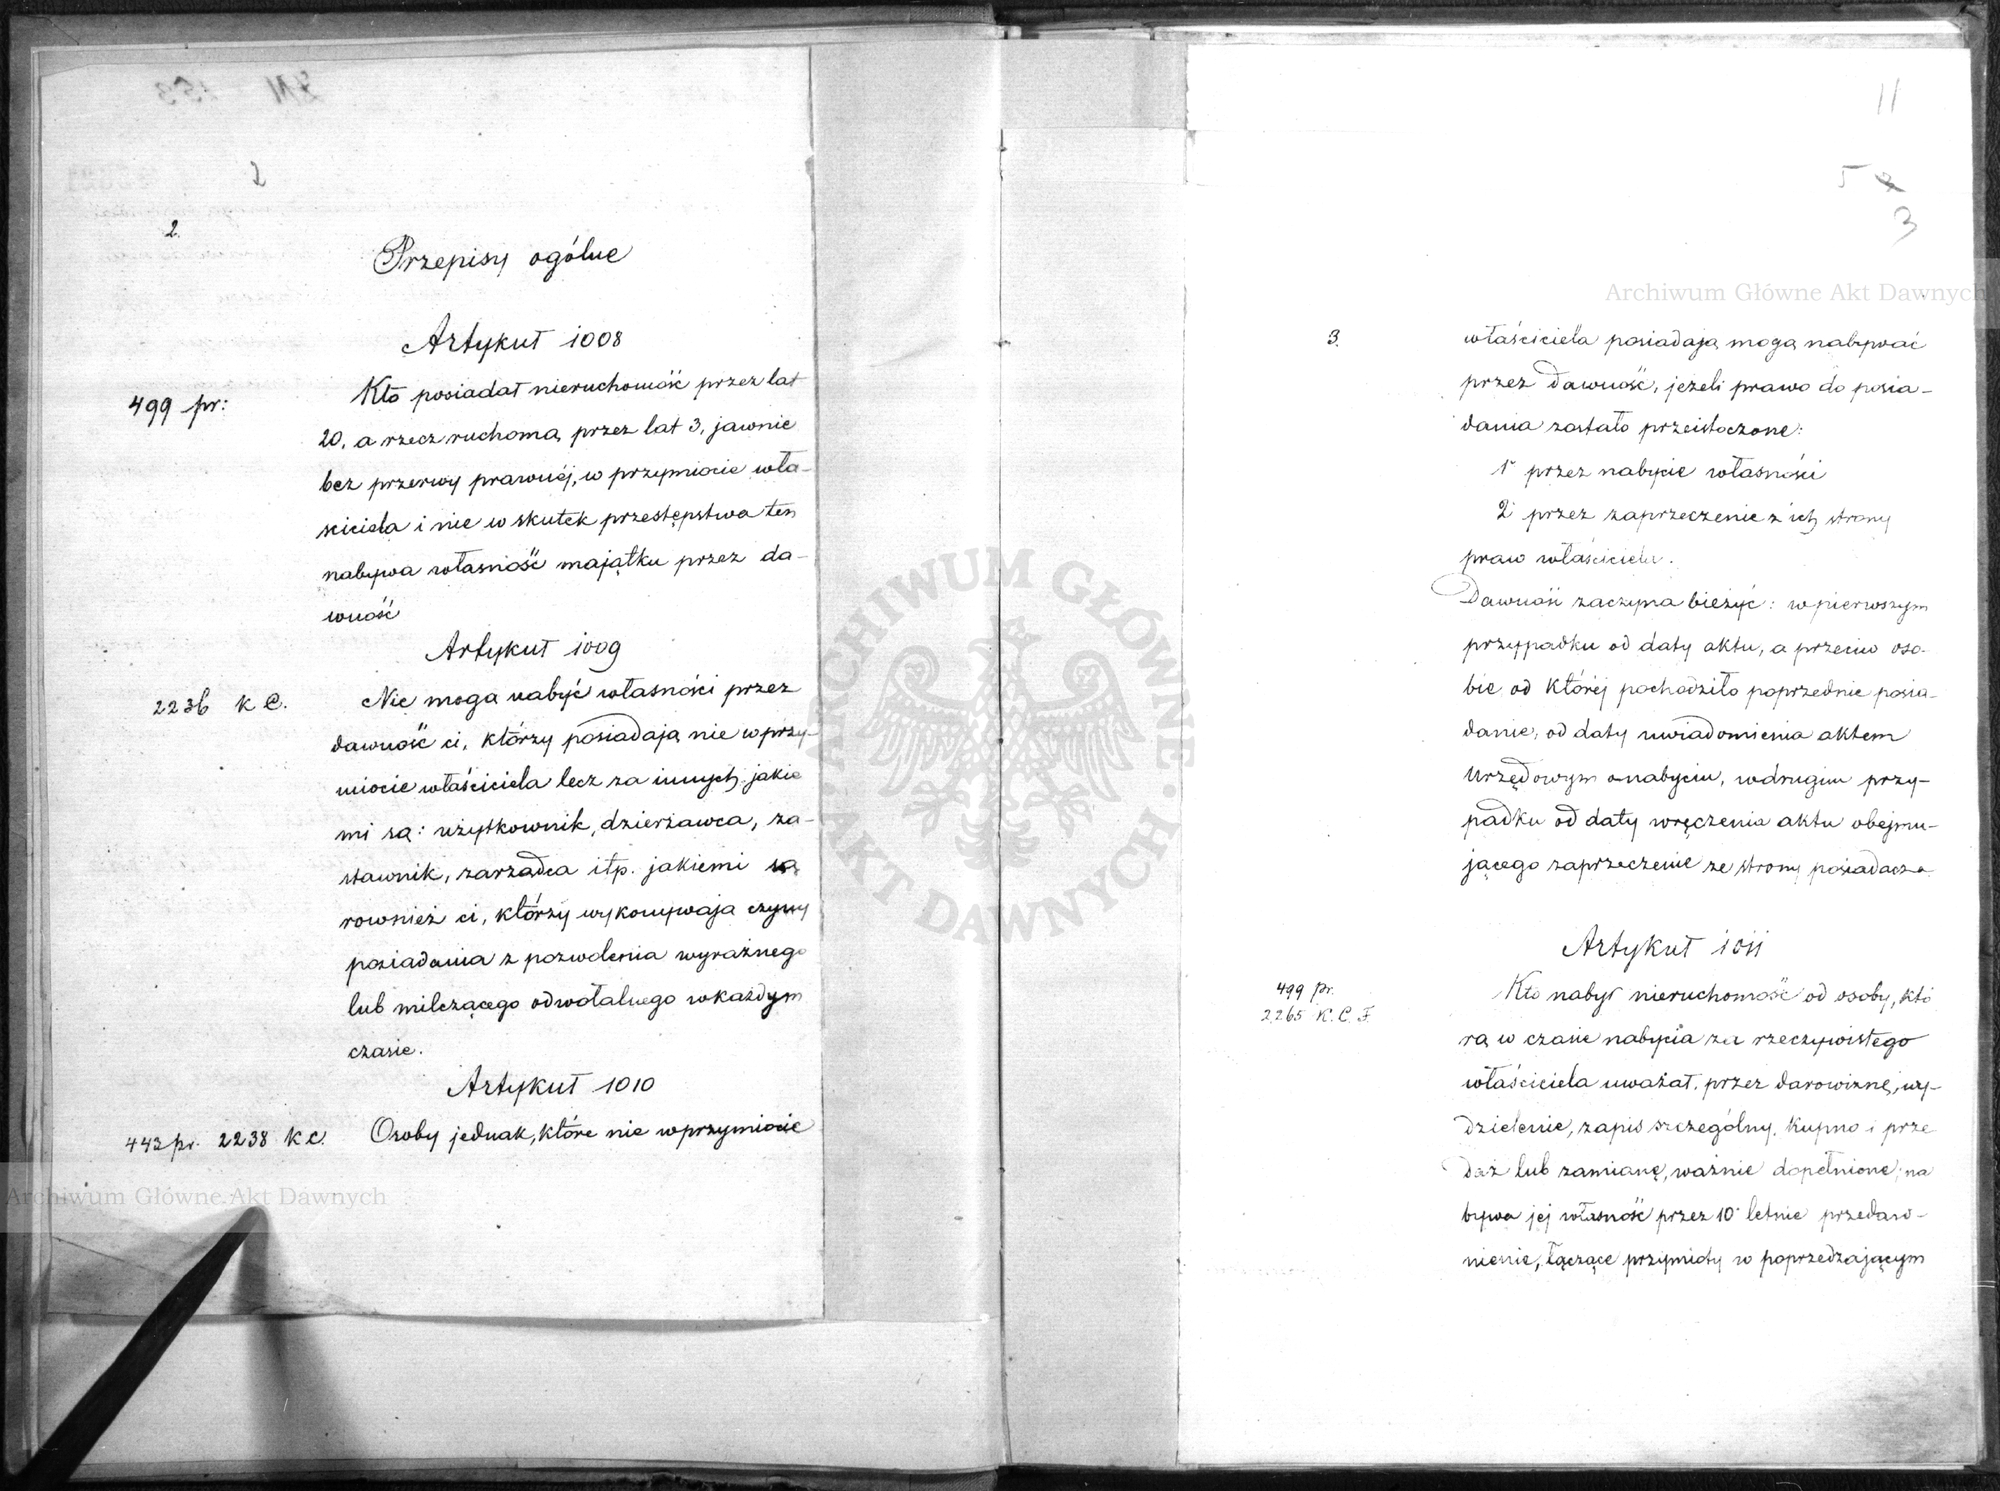 2
2.
Przepisy ogólne
Artykuł 1008
499 pr:
Kto posiadał nieruchomość przez lat
20, a rzecz ruchomą przez lat 3, jawnie
bez przerwy prawnéj, w przymiocie wła-
ściciela i nie w skutek przestępstwa ten
nabywa własność majątku przez da-
wność
Artykuł 1009
2236 K C.
Nie mogą nabyć własności przez
dawność ci, którzy posiadają nie w przy-
miocie właściciela lecz za innych jakie
mi są: użytkownik, dzierżawca, za-
stawnik, zarządca itp. jakiemi są
rownież ci, którzy wykonywają czyny
posiadania z pozwolenia wyraźnego
lub milczącego odwołalnego w każdym
czasie.
Artykuł 1010
443 pr. 2238 K C.
Osoby jednak, które nie w przymiocie
11
5 2
3
3.
właściciela posiadają mogą nabywać
przez dawność, jeżeli prawo do posia-
dania zostało przeistoczone:
1° przez nabycie własności
2° przez zaprzeczenie z ich strony
praw właściciela.
Dawność zaczyna bieżyć: w pierwszym
przypadku od daty aktu, a przeciw oso-
bie od któréj pochodziło poprzednie posia-
danie, od daty uwiadomienia aktem
Urzędowym o nabyciu, w drugim przy-
padku od daty wręczenia aktu obejmu-
jącego zaprzeczenie ze strony posiadacza
Artykuł 1011
499 pr.
2265 K. C. F.
Kto nabył nieruchomość od osoby, któ
rą w czasie nabycia za rzeczywistego
właściciela uważał, przez darowiznę, wy-
dzielenie, zapis szczególny, kupno i prze
daż lub zamianę, ważnie dopełnione, na
bywa jéj własność przez 10 letnie przedaw-
nienie, łączące przymioty w poprzedzającym
Archiwum Główne Akt Dawnych
Archiwum Główne Akt Dawnych
ARCHIWUM GŁÓWNE AKT DAWNYCH